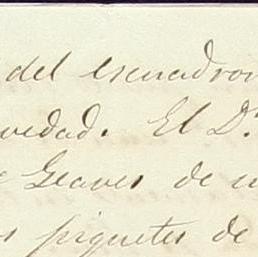 del escuadron
vedad. El D.
Geaves de
piquetes de